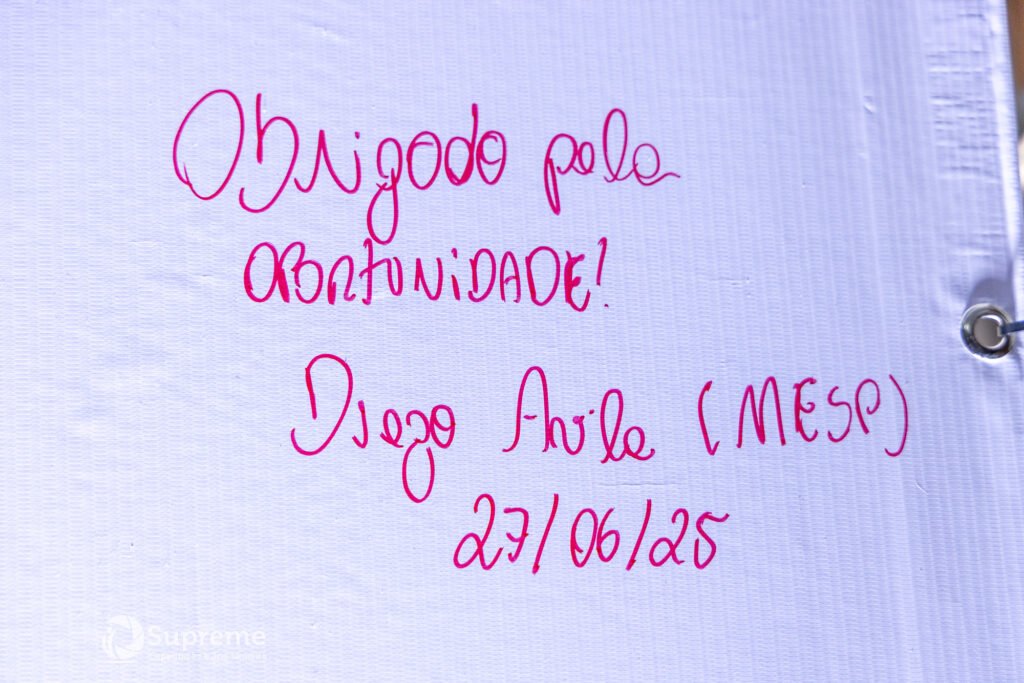 Obrigado pela
OPORTUNIDADE!
Diego Avila (MESP)
27/06/25
Supreme